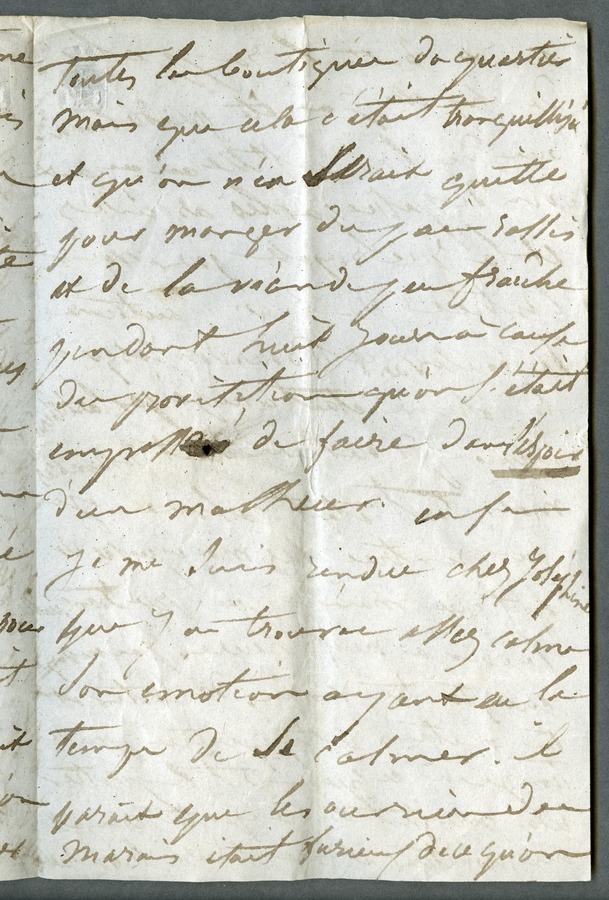 toutes les boutiques du quartier
mais que cela c'était tranquillisé
et qu'on n'en serait quitte
pour manger du pain rassis
et de la viande peu fraîche
pendant huit jours à cause
du provition qu'on s'était
empressé de faire dans l'espoir
d'un malheur. enfin
je me suis rendue chez Joséphine
que j'ai trouvae assez calme
son émotion ayant eu le
temps de se calmer. il
parait que les ouvriers du
Marais était furieux de ce qu'on